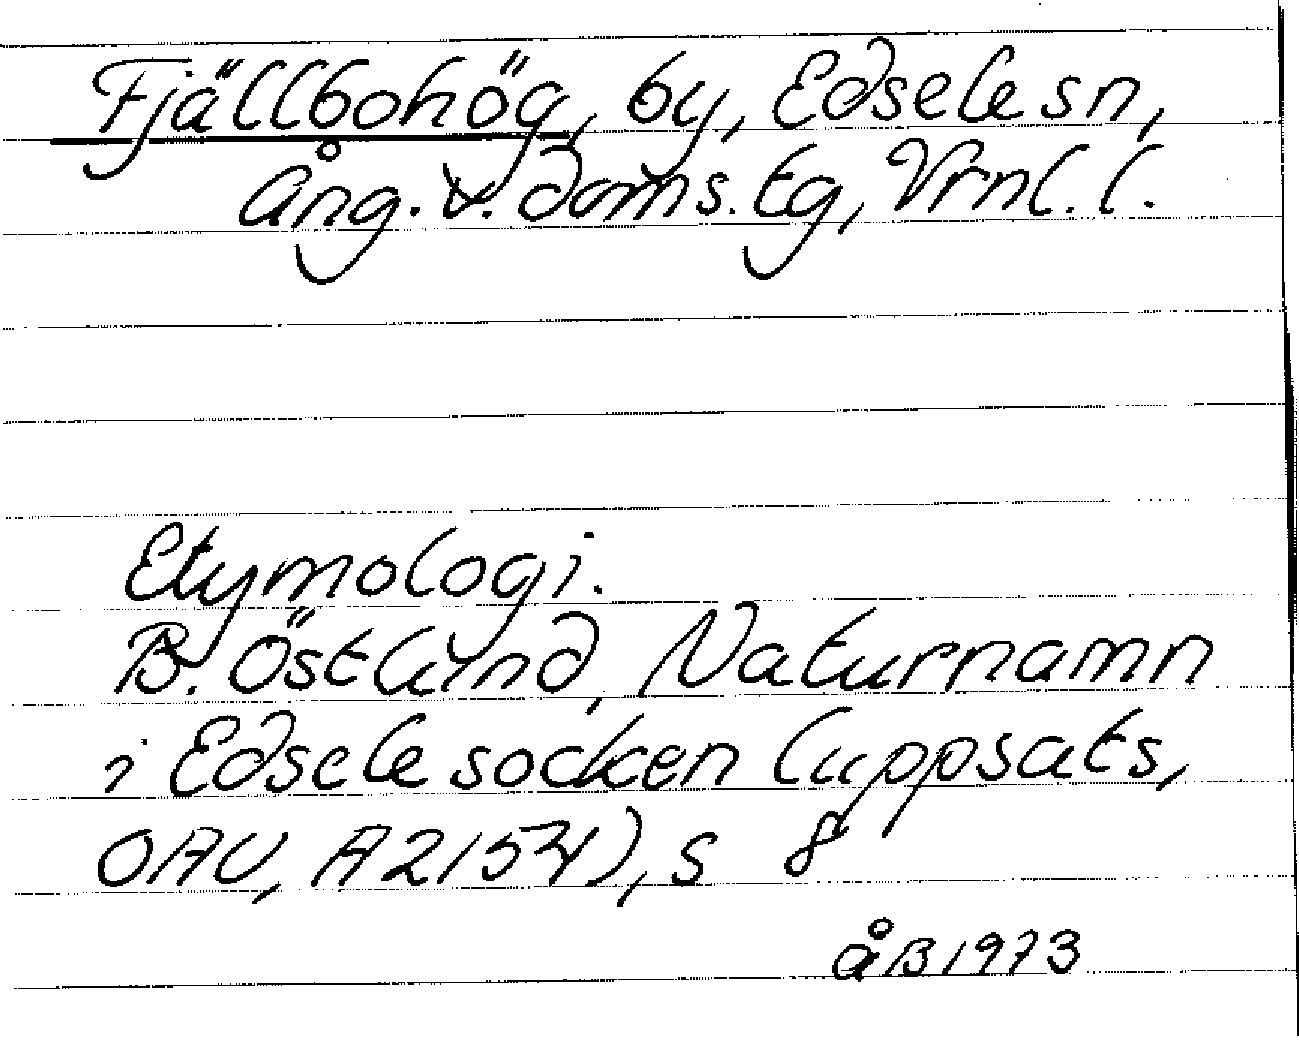 Fjällbohög, by, Edsele sn,
Ång. v. doms. tg, Vrnl. l.
Etymologi.
B. Östlund, Naturnamn
i Edsele socken (uppsats,
OAU, A2154), s 8
ÅB 1973